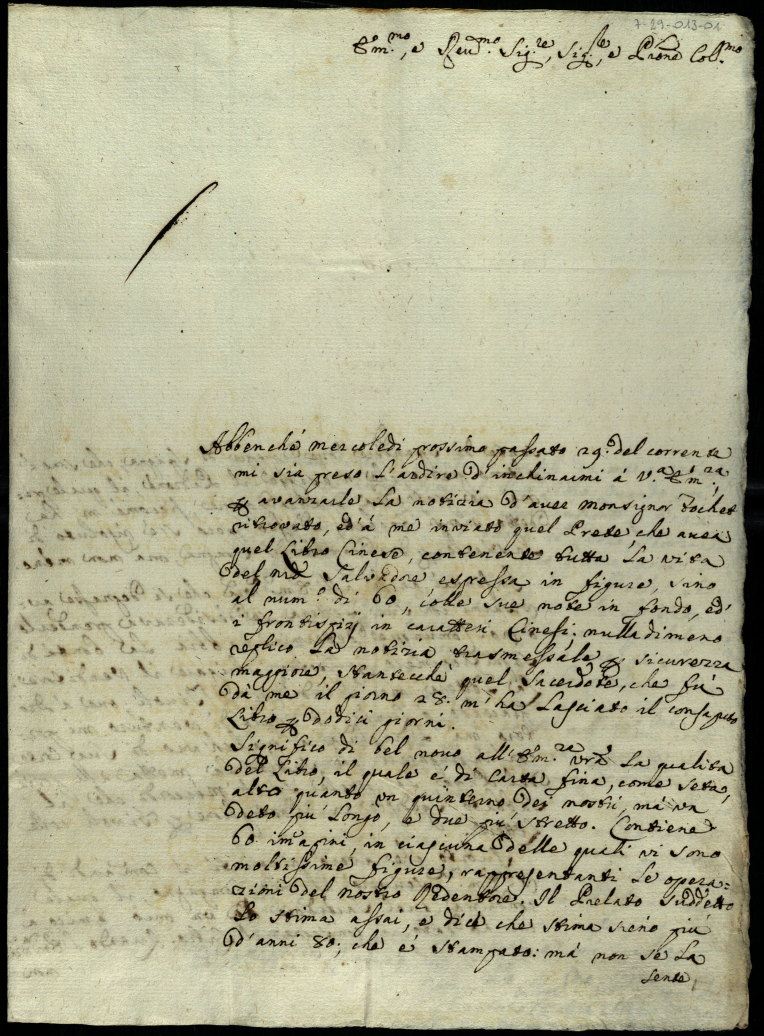 7-29-013-01
Em.mo, e Reu.mo Sig.re, Sig.re, e Prone Coll.mo
Abbenché mercoledi prossimo passato 29. del corrente
mi sia preso l'ardire d'inchinarmi á V.a Em.za,
ꝑ avanzarle la notizia d'auer Monsignor Fochet
ritrovato, ed' á me inviato quel Prete, che avea
quel Libro Cinese, contenente tutta la vita
del nrõ Salvadore espressa in figure, sino
al num.o di 60,, colle sue note in fondo, ed'
i frontispizij in caratteri Cinesi: nulladimeno
replico la notizia trasmessale ꝑ sicurezza
maggiore, stantecchè quel Sacerdote, che fú
dà me il giorno 28. m'há lasciato il consaputo
Libro ꝑ dodici giorni.
Significo di bel nouo all'Em.za vrã la qualita
del Libro, il quale é di carta fina, come seta,
alto quanto un quinterno dei nostri, má un
deto piú longo, e due piú stretto. Contiene
60. imagini, in ciascuna delle quali vi sono
moltissime figure, rappresentanti le opera=
zioni del nostro Redentore. Il Prelato suddetto
lo stima assai, e dice che stima sieno piú
d'anni 80; che é stampato: má non se la
sente